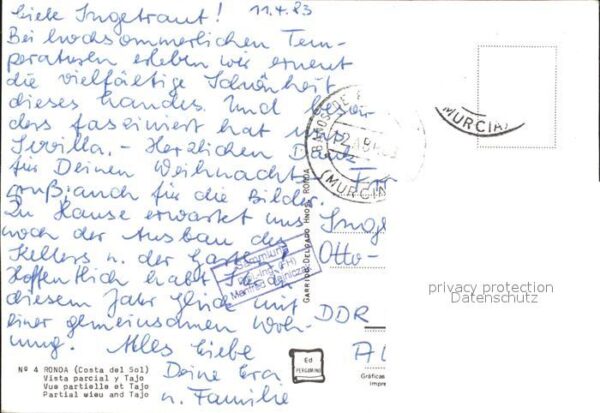 Liebe Ingetraut! 11.4.83
Bei hochsommerlichen Tem-
peraturen erleben wir erneut
die vielfältige Schönheit
dieses Landes. Und beson-
ders fasziniert hat uns
Sevilla. - Herzlichen Dank
für Deinen Weihnachts-
gruß auch für die Bilder.
Zu Hause erwartet uns
noch der Ausbau des
Kellers u. der Garten!
Hoffentlich habt Ihr in
diesem Jahr Glück mit
einer gemeinsamen Woh-
nung. Alles Liebe
Deine
u. Familie
Inge
Otto-
DDR
BAÑOS DE
(MURCIA)
MURCIA
GARRIDO-DELGADO HNOS. RONDA
Sammlung
Manfred
privacy protection
Datenschutz
Nº 4 RONDA (Costa del Sol)
Vista parcial y Tajo
Vue partielle et Tajo
Partial wieu and Tajo
Ed
PERGAMINO
Gráficas
Impre